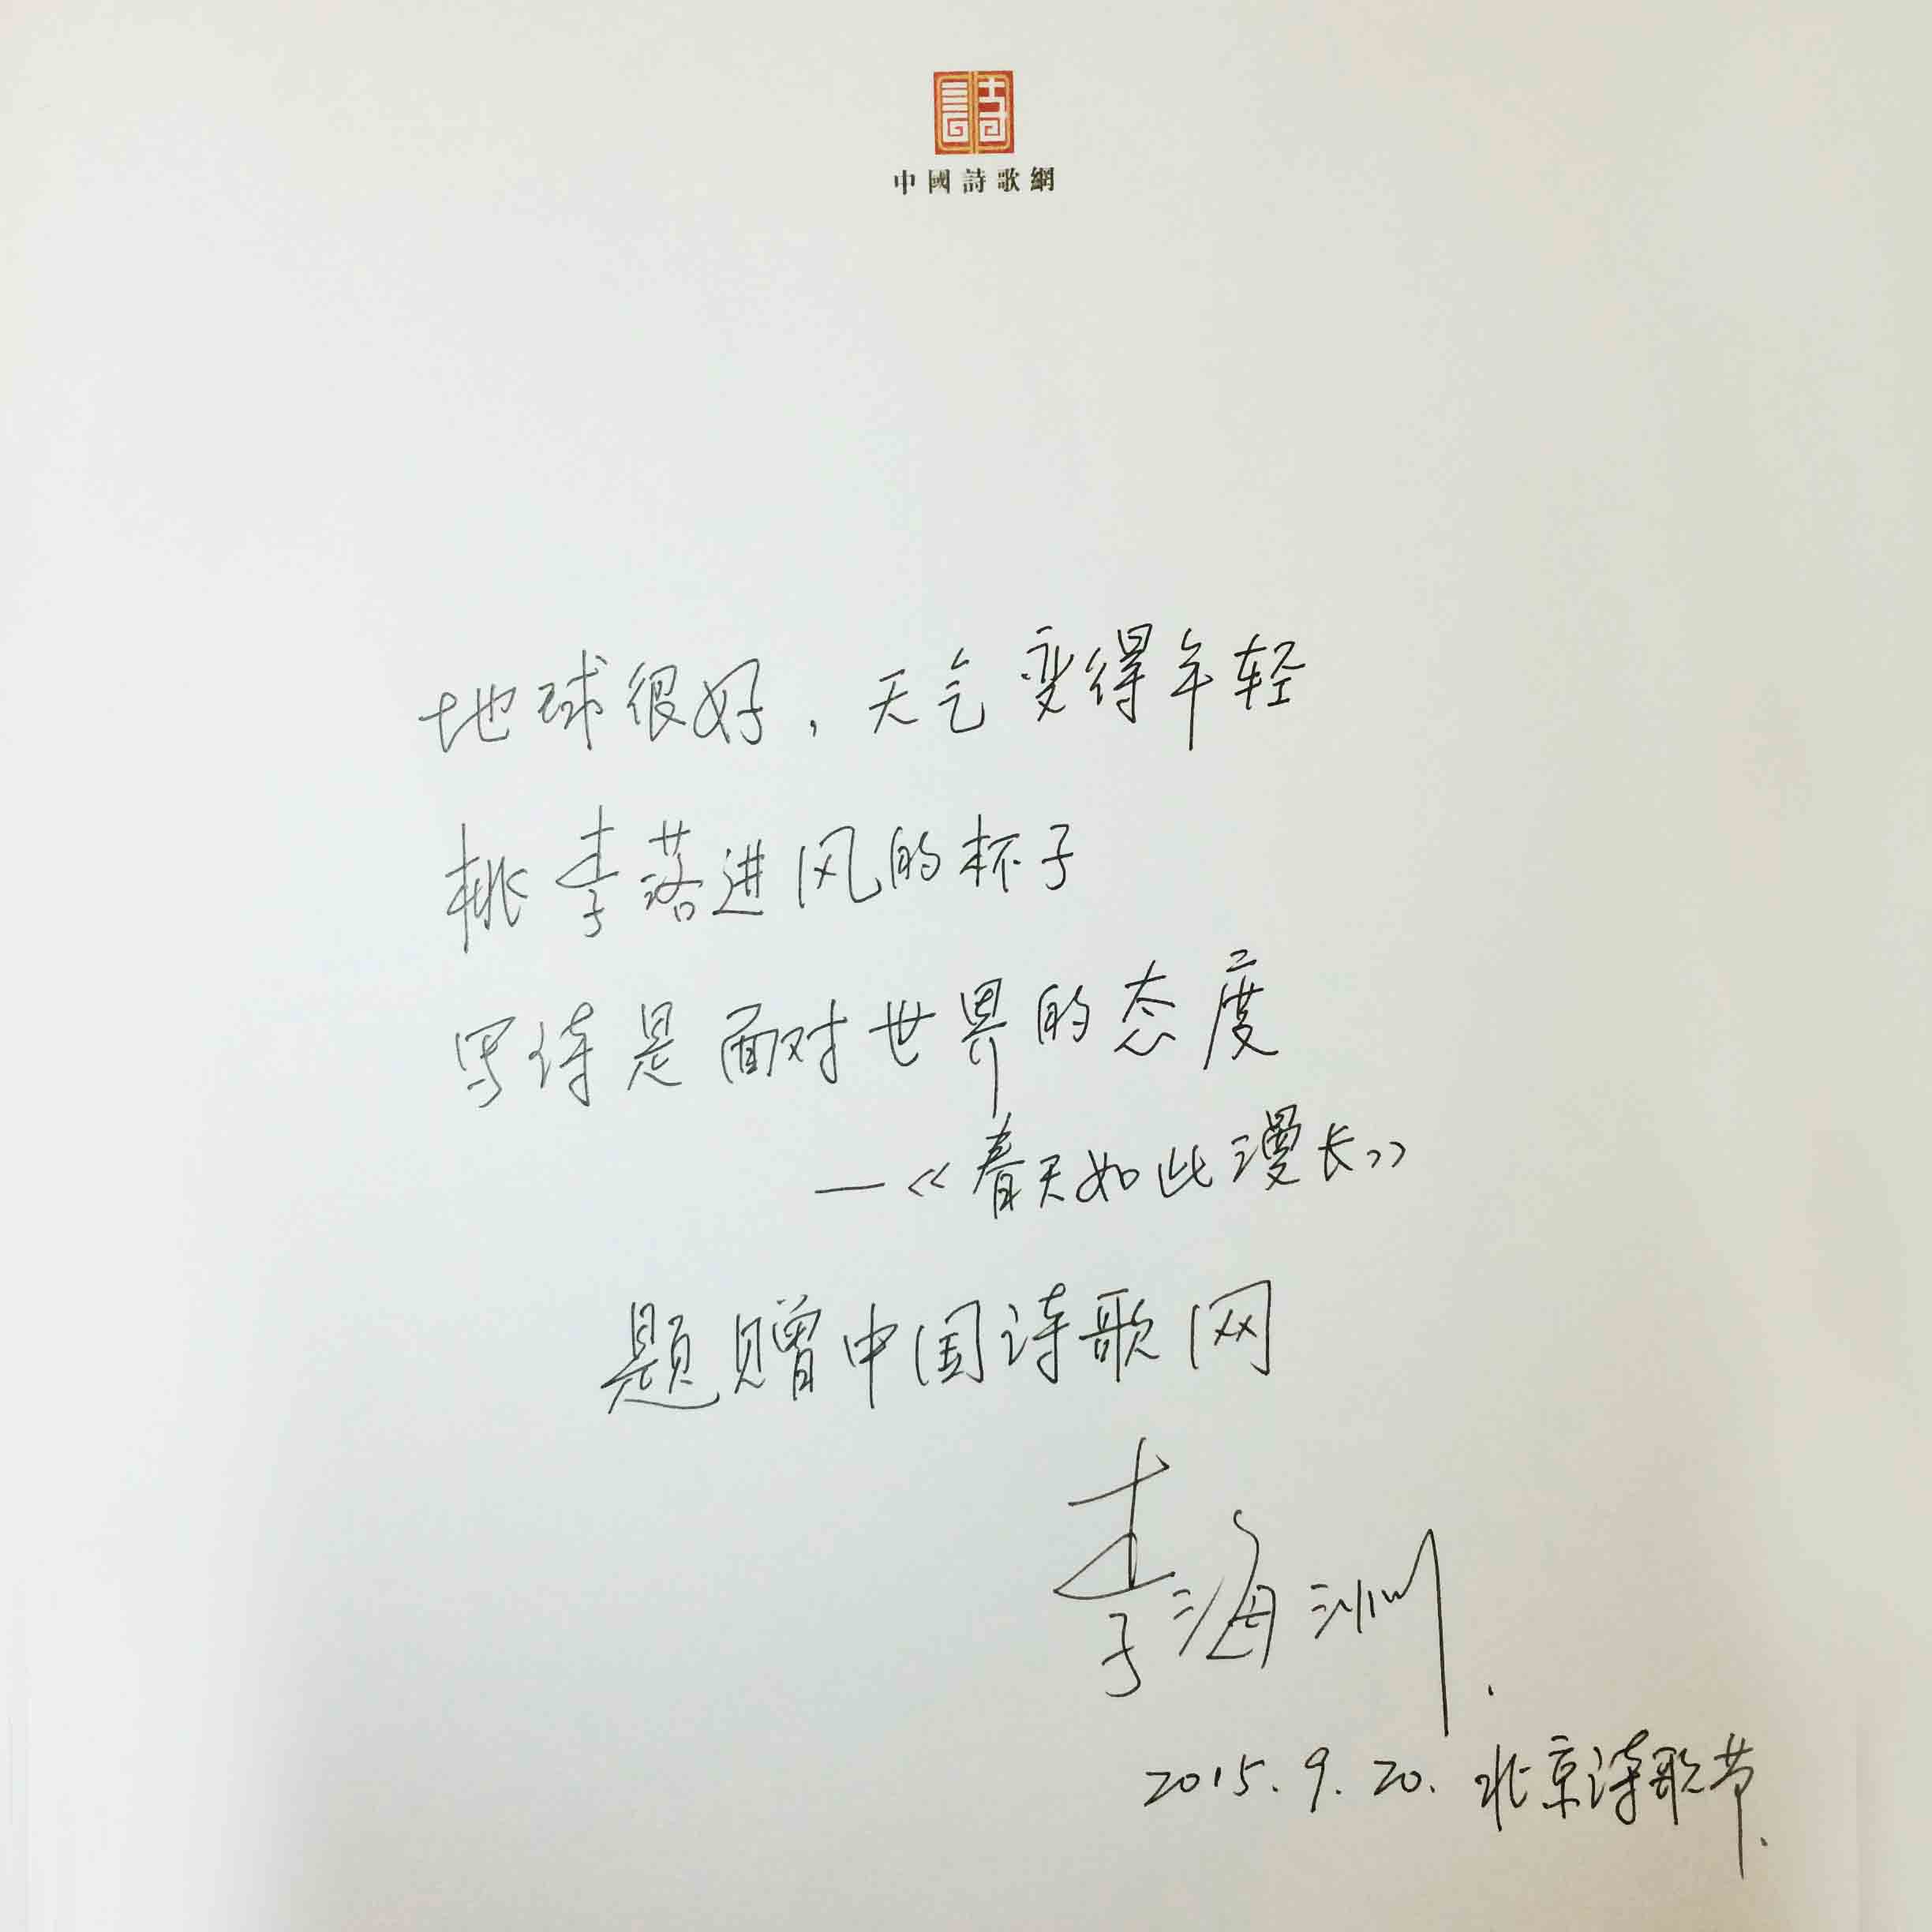 詩
中國詩歌網
地球很好，天气变得年轻
桃李落进风的杯子
写诗是面对世界的态度
—《春天如此漫长》
题赠中国诗歌网
李海洲.
2015.9.20.北京诗歌节.